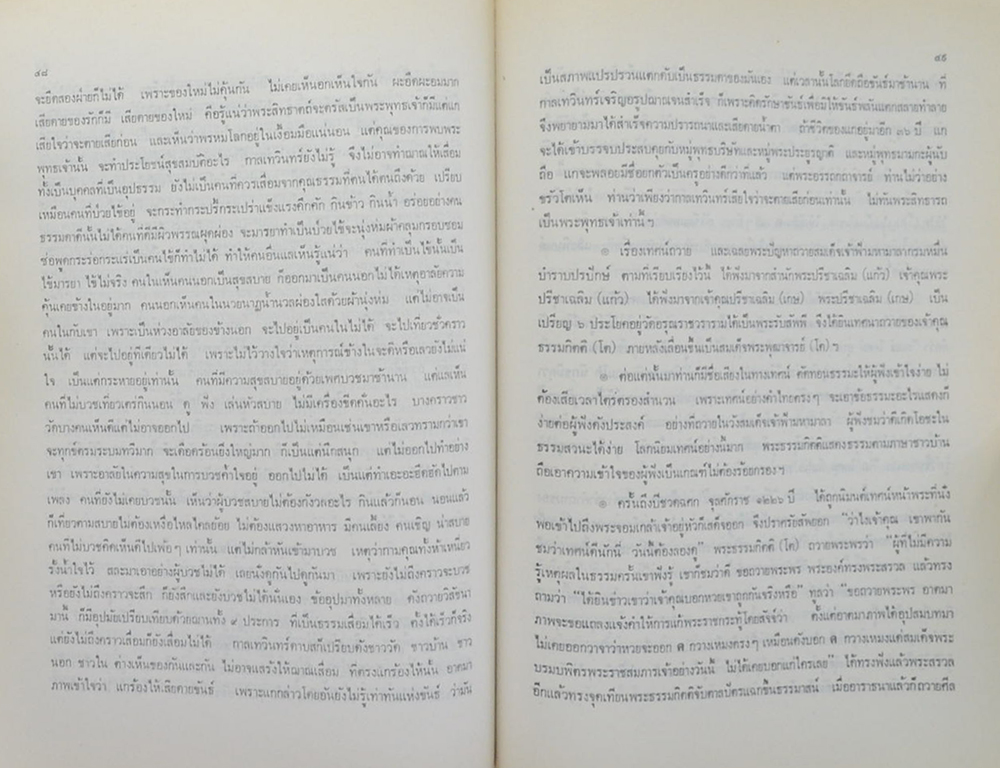 ๔๘
จะยึดสองฝ่ายก็ไม่ได้ เพราะของใหม่ไม่คุ้นกัน ไม่เคยเห็นอกเห็นใจกัน ผะอืดผะอมมาก
เสียดายของรักก็มี เสียดายของใหม่ คือรู้แน่ว่าพระสิทธาตถ์จะตรัสเป็นพระพุทธเจ้าก็มีแต่แก
เสียใจว่าจะตายเสียก่อน และเห็นว่าพรหมโลกอยู่ในเงื้อมมือแน่นอน แต่คุณของการพบพระ
พุทธเจ้านั้น จะทำประโยชน์สุขสมบัติอะไร กาลเทวินทร์ยังไม่รู้ จึงไม่อาจทำฌานให้เสื่อม
ทั้งเป็นบุคคลที่เป็นอุปธรรม ยังไม่เป็นคนที่ควรเสื่อมจากคุณธรรมที่ตนได้ตนถึงด้วย เปรียบ
เหมือนคนที่ป่วยไข้อยู่ จะกระทำกระปรี้กระเปร่าแข็งแรงคึกคัก กินข้าว กินน้ำ อร่อยอย่างคน
ธรรมดาดีนั้นไม่ได้ คนที่ดีมีผิวพรรณผุดผ่อง จะมารยาทำเป็นป่วยไข้จะนุ่งห่มผ้าคลุมกรอมซอม
ซ่อพูดกระร่อกระแร่เป็นคนไข้ก็ทำไม่ได้ ทำให้คนอื่นแลเห็นรู้แน่ว่า คนที่ทำเป็นไข้นั้นเป็น
ไข้มารยา ไข้ไม่จริง คนในเห็นคนนอกเป็นสุขสบาย ก็ออกมาเป็นคนนอกไม่ได้ เหตุอาลัยความ
คุ้นเคยข้างในอยู่มาก คนนอกเห็นคนในนวยนาฏน้ำนวลผ่องใสด้วยผ้านุ่งห่ม แต่ไม่อาจเป็น
คนในกับเขา เพราะเป็นห่วงอาลัยของข้างนอก จะไปอยู่เป็นคนในไม่ได้ จะไปเที่ยวชั่วคราว
นั้นได้ แต่จะไปอยู่ทีเดียวไม่ได้ เพราะไม่ไว้วางใจว่าเหตุการณ์ข้างในจะดีหรือเลวยังไม่แน่
ใจ เป็นแต่กระหายอยู่เท่านั้น คนที่มีความสุขสบายอยู่ด้วยเพศบวชมาช้านาน แต่แลเห็น
คนที่ไม่บวชเที่ยวเตร่กินนอน ดู ฟัง เล่นหัวสบาย ไม่มีเครื่องขีดคั่นอะไร บางคราวชาว
วัดบางคนเห็นดีแต่ไม่อาจออกไป เพราะถ้าออกไปไม่เหมือนเช่นเขาหรือเลวทรามกว่าเขา
จะทุกข์ตรมระบมทวีมาก จะเดือดร้อนยิ่งใหญ่มาก ก็เป็นแต่นึกสนุก แต่ไม่ออกไปทำอย่าง
เขา เพราะอาลัยในความสุขในการบวชค้ำใจอยู่ ออกไปไม่ได้ เป็นแต่ทำเออะอะฮึดฮัดไปตาม
เพลง คนที่ยังไม่เคยบวชนั้น เห็นว่าผู้บวชสบายไม่ต้องกังวลอะไร กินแล้วก็นอน นอนแล้ว
ก็เที่ยวตามสบายไม่ต้องเหงื่อไหลไคลย้อย ไม่ต้องแสวงหาอาหาร มีคนเลี้ยง คนเชิญ น่าสบาย
คนที่ไม่บวชคิดเห็นดีไปเพ้อๆ เท่านั้น แต่ไม่กล้าหันเข้ามาบวช เหตุว่ากามคุณทั้งห้าเหนี่ยว
รั้งน้ำใจไว้ สละมาเอาอย่างผู้บวชไม่ได้ เลยนั่งดูกันไปดูกันมา เพราะยังไม่ถึงคราวจะบวช
หรือยังไม่ถึงคราวจะสึก ก็ยังสึกและยังบวชไม่ได้นั่นเอง ข้ออุปมาทั้งหลาย ดังถวายวิสัชนา
มานี้ ก็มีอุปมัยเปรียบเทียบด้วยฌานทั้ง ๙ ประการ ที่เป็นธรรมเสื่อมได้เร็ว ตั้งได้เร็วก็จริง
แต่ยังไม่ถึงคราวเสื่อมก็ยังเสื่อมไม่ได้ กาลเทวินทร์ดาบสก็เปรียบดังชาววัด ชาวบ้าน ชาว
นอก ชาวใน ต่างเห็นของกันและกัน ไม่อาจแสร้งให้ฌาณเสื่อม ที่ตรงแกร้องไห้นั้น อาตมา
ภาพเข้าใจว่า แกร้องไห้เสียดายขันธ์ เพราะแกกล่าวโดยอันยังไม่รู้เท่าทันแห่งขันธ์ ว่ามัน
๔๙
เป็นสภาพแปรปรวนแตกดับเป็นธรรมดาของมันเอง แต่เวลานั้นโลกยึดถือขันธ์มาช้านาน ที่
กาลเทวินทร์เจริญอรูปฌาณจนสำเร็จ ก็เพราะคิดรักษาขันธ์เพื่อมิให้ขันธ์พลันแตกสลายทำลาย
จึงพยายามมาได้สำเร็จความปรารถนาและเสียดายน้ำตา ถ้าชีวิตของแกอยู่มาอีก ๓๖ ปี แก
จะได้เข้าบรรจบประสบคุยกับหมู่พุทธบริษัทและหมู่พระประยูรญาติ และหมู่พุทธมามกะผู้นับ
ถือ แกจะพลอยมีชื่อยกตัวเป็นครูอย่างดีกว่าที่แล้ว แต่พระอรรถกถาจารย์ ท่านไม่ว่าอย่าง
ขรัวโตเห็น ท่านว่าเพียงว่ากาลเทวินทร์เสียใจว่าจะตายเสียก่อนเท่านั้น ไม่ทันพระสิทธารถ
เป็นพระพุทธเจ้าเท่านี้ฯ
๏ เรื่องเทศน์ถวาย และเฉลยพระปัญหาถวายสมเด็จเจ้าฟ้ามหามาลากรมหมื่น
บำราบปรปักษ์ ตามที่เรียบเรียงไว้นี้ ได้ฟังมาจากสำนักพระปรีชาเฉลิม (แก้ว) เจ้าคุณพระ
ปรีชาเฉลิม (แก้ว) ได้ฟังมาจากเจ้าคุณปรีชาเฉลิม (เกษ) พระปรีชาเฉลิม (เกษ) เป็น
เปรียญ ๖ ประโยคอยู่วัดอรุณราชวรารามได้เป็นพระรับสัพพี จึงได้ยินเทศนาถวายของเจ้าคุณ
ธรรมกิตติ (โต) ภายหลังเลื่อนขึ้นเป็นสมเด็จพระพุฒาจารย์ (โต)ฯ
๏ ต่อแต่นั้นมาท่านก็มีชื่อเสียงในทางเทศน์ ดัดทอนธรรมะให้ผู้ฟังเข้าใจง่าย ไม่
ต้องเสียเวลาไตร่ตรองสำนวน เพราะเทศน์อย่างคำไทยตรงๆ จะเอาข้อธรรมะอะไรแสดงก็
ง่ายต่อผู้ฟังดังประสงค์ อย่างที่ถวายในวังสมเด็จเจ้าฟ้ามหามาลา ผู้ฟังชมว่าดีเกิดโอชะใน
ธรรมสวนะได้ง่าย โลกนิยมเทศน์อย่างนี้มาก พระธรรมกิตติแสดงธรรมตามภาษาชาวบ้าน
ถือเอาความเข้าใจของผู้ฟังเป็นเกณฑ์ไม่ต้องร้อยกรองฯ
๏ ครั้นถึงปีชวดฉศก จุลศักราช ๑๒๒๖ ปี ได้ถูกนิมนต์เทศน์หน้าพระที่นั่ง
พอเข้าไปถึงพระจอมเกล้าเจ้าอยู่หัวก็เสด็จออก จึงปราศรัยสัพยอก "ว่าไงเจ้าคุณ เขาพากัน
ชมว่าเทศน์ดีนักนี่ วันนี้ต้องลองดู" พระธรรมกิตติ (โต) ถวายพระพรว่า "ผู้ที่ไม่มีความ
รู้เหตุผลในธรรมครั้นเขาฟังรู้ เขาก็ชมว่าดี ขอถวายพระพร พระองค์ทรงพระสรวล แล้วทรง
ถามว่า "ได้ยินข่าวเขาว่าเจ้าคุณบอกหวยเขาถูกกันจริงหรือ" ทูลว่า "ขอถวายพระพร อาตมา
ภาพจะขอแถลงแจ้งคำให้การแก้พระราชกระทู้โดยสัจจ์ว่า ตั้งแต่อาตมาภาพได้อุปสมบทมา
ไม่เคยออกวาจาว่าหวยจะออก ด กวางเหมงตรงๆ เหมือนดังบอก ด กวางเหมงแด่สมเด็จพระ
บรมบพิตรพระราชสมภารเจ้าอย่างวันนี้ ไม่ได้เคยบอกแก่ใครเลย" ได้ทรงฟังแล้วพระสรวล
อีกแล้วทรงจุดเทียนพระธรรมกิตติจับตาลปัตรแฉกขึ้นธรรมาสน์ เมื่ออาราธนาแล้วก็ถวายศีล